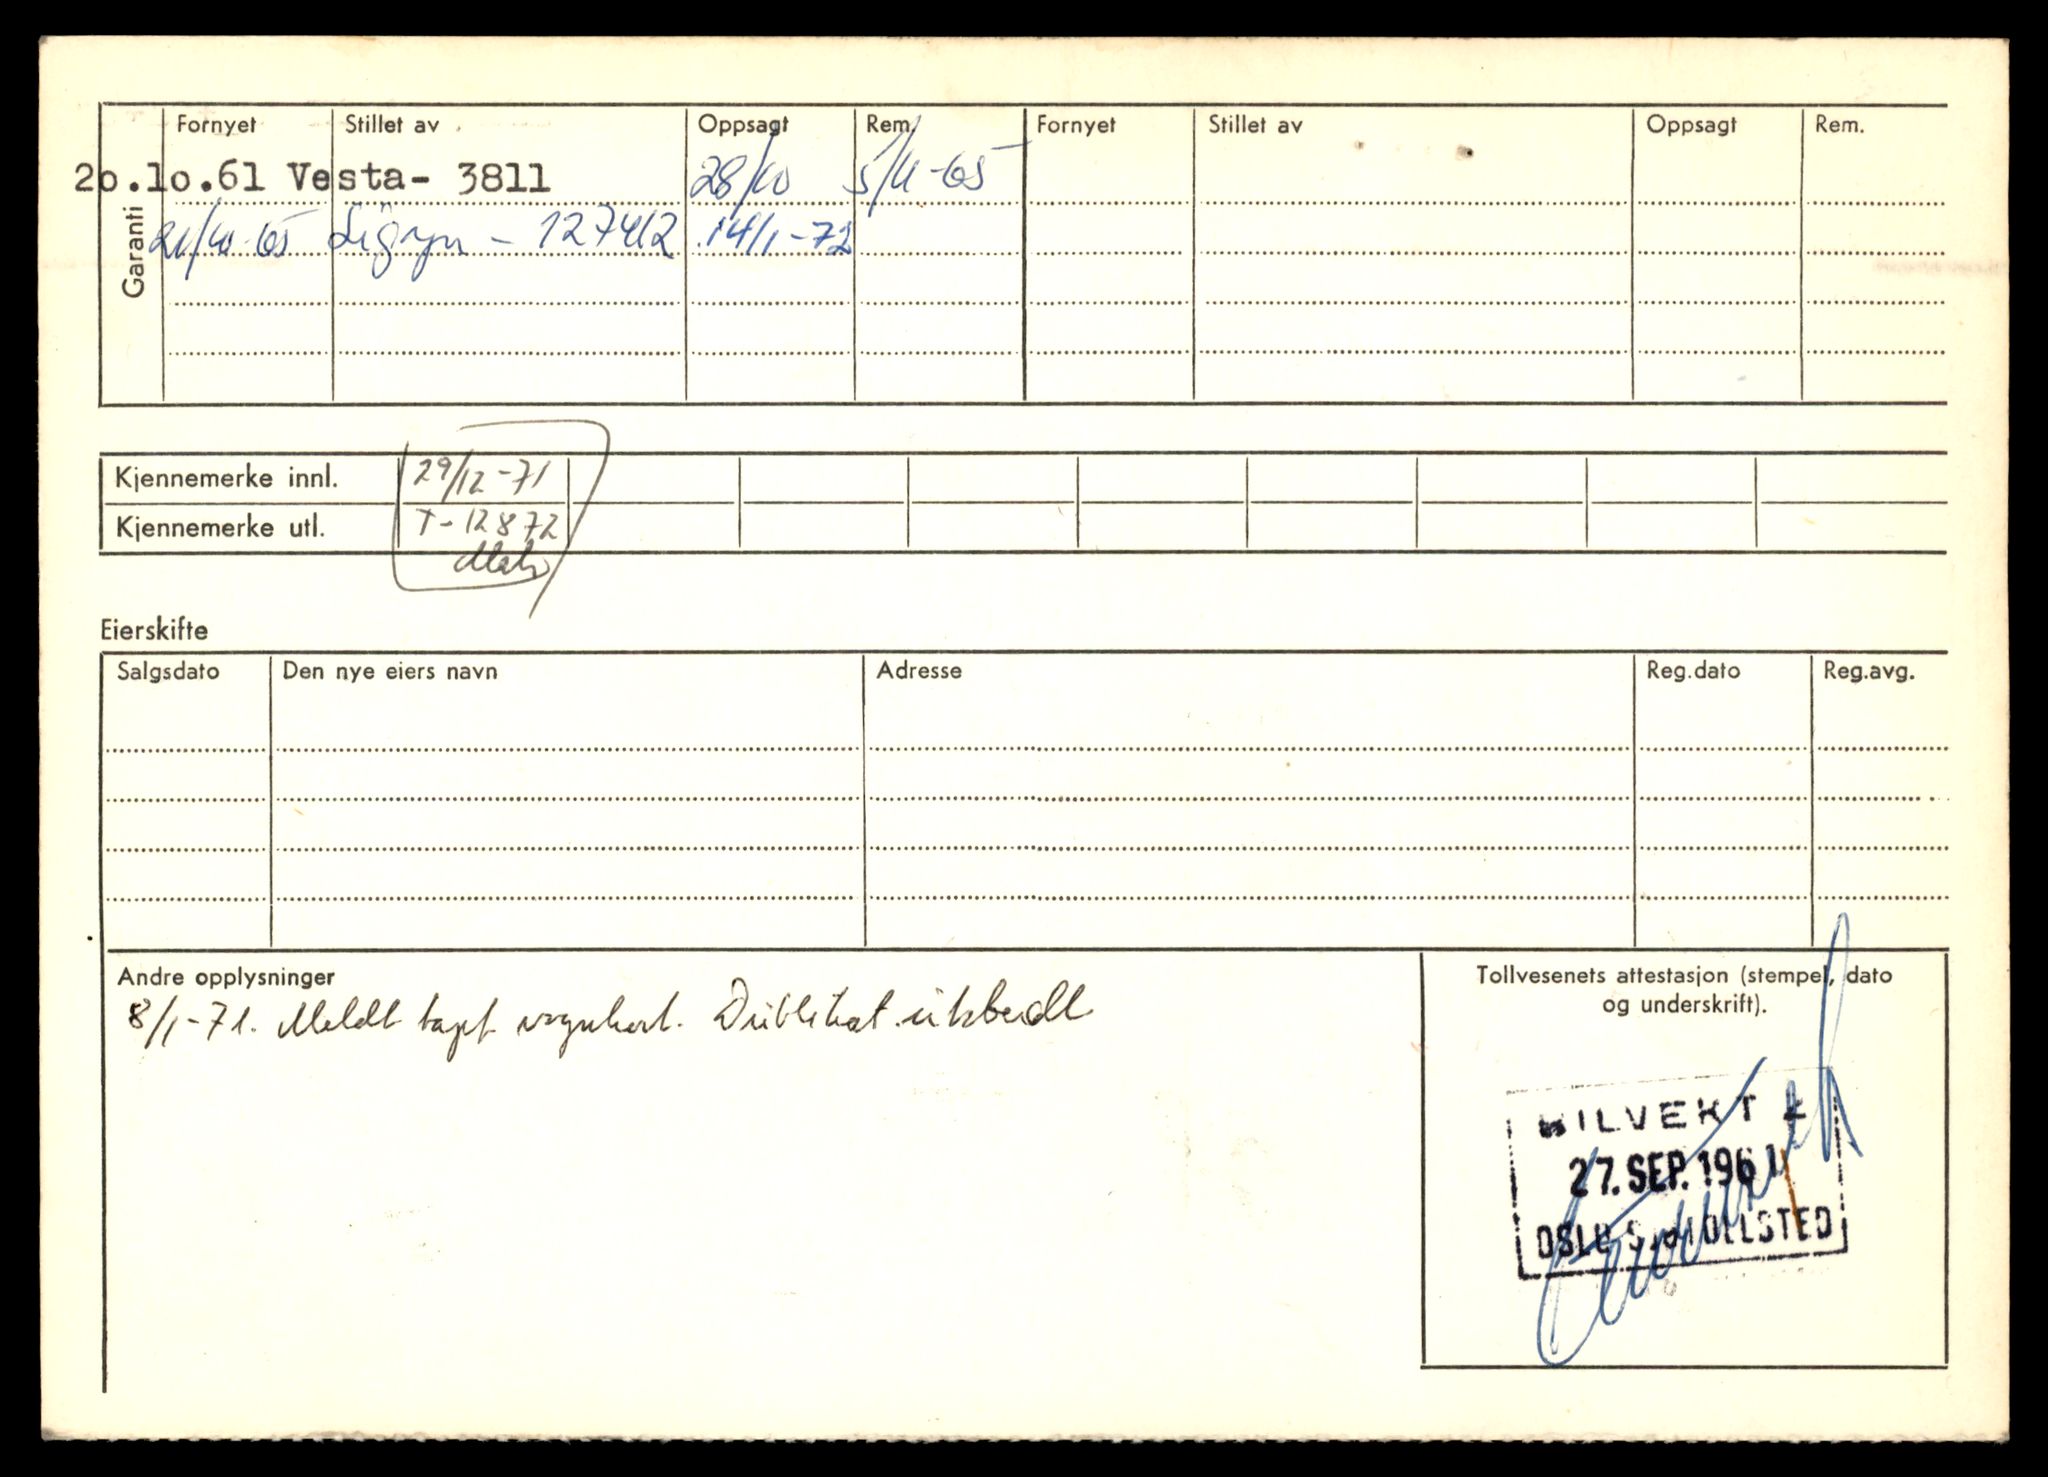 Garanti
Fornyet Stillet av Oppsagt Rem. Fornyet Stillet av Oppsagt Rem.
20.10.61 Vesta- 3811 28/10 5/11-65
21/10-65 Sigyn - 127412 14/1-72
Kjennemerke innl. 29/12-71
Kjennemerke utl. T-12872
Eierskifte
Salgsdato Den nye eiers navn Adresse Reg.dato Reg.avg.
Andre opplysninger
8/1-71. Meldt tapt vognkort. Dublikat utstedt
Tollvesenets attestasjon (stempel, dato
og underskrift).
27. SEP. 1961